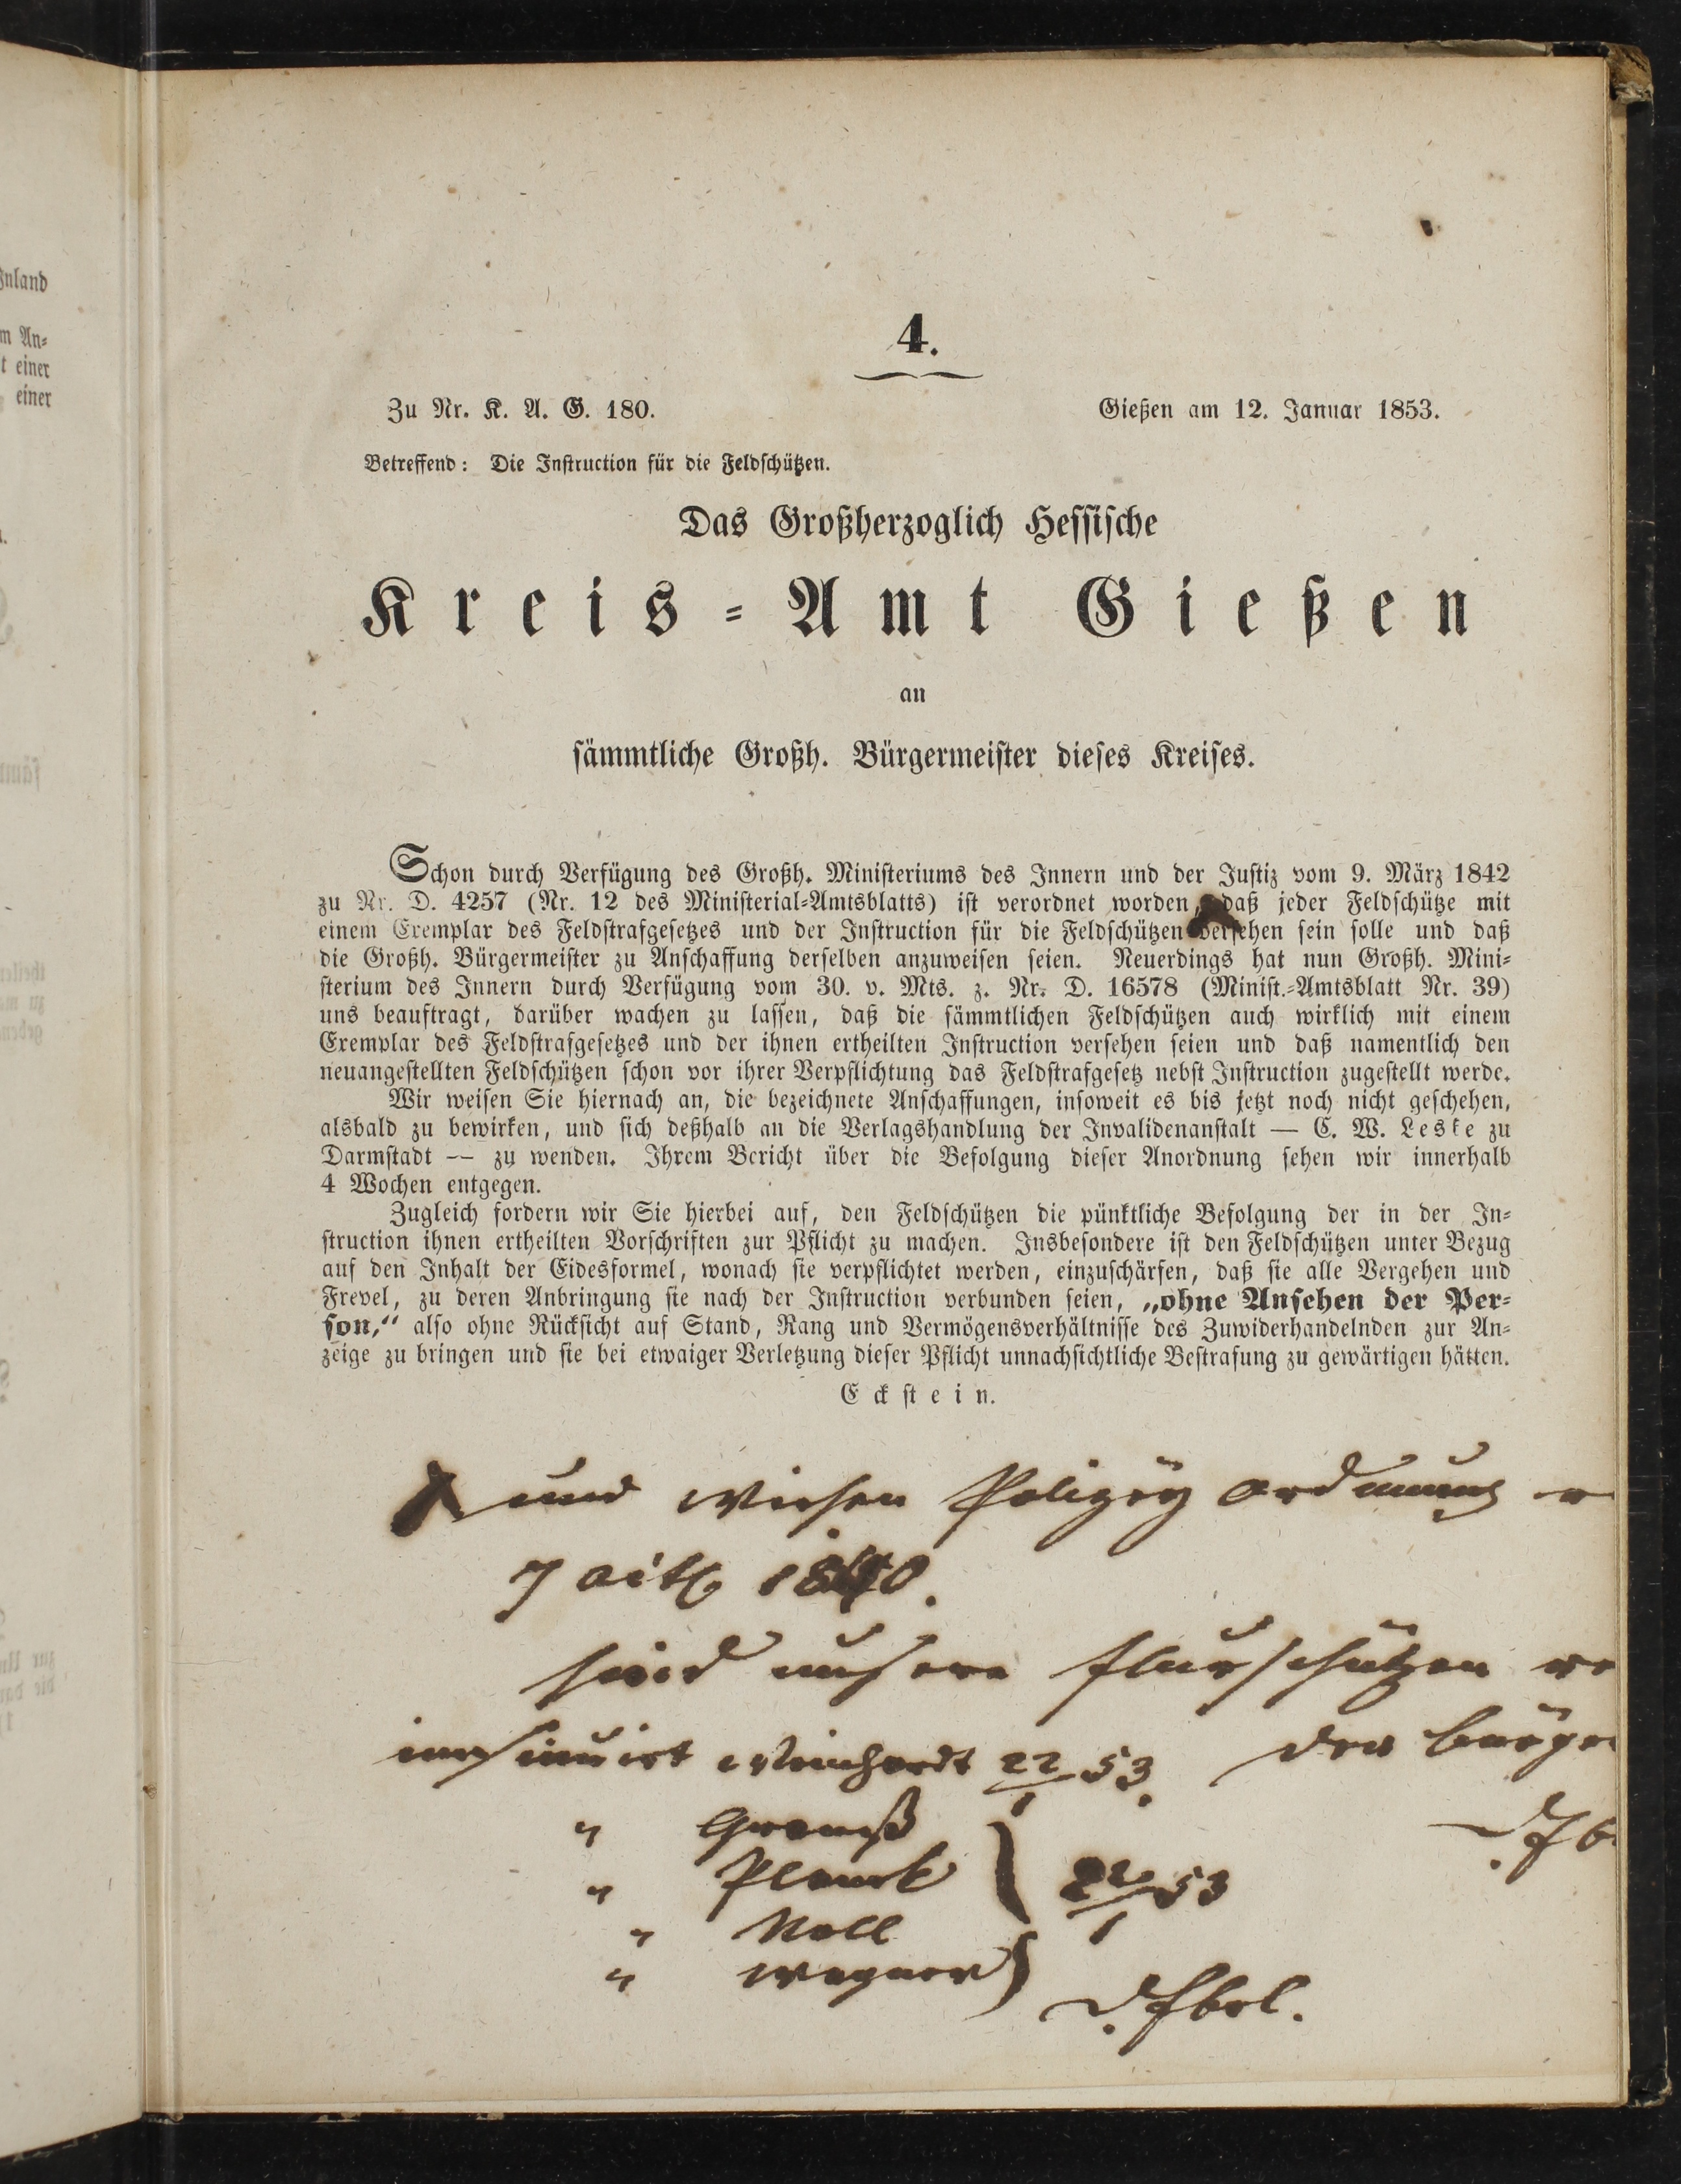 4.
Zu Nr. K. A. G. 180. Gießen am 12. Januar 1853.
Betreffend: Die Instruction für die Feldschützen.
Das Großherzoglich Hessische
Kreis-Amt Gießen
an
sämmtliche Großh. Bürgermeister dieses Kreises.
Schon durch Verfügung des Großh. Ministeriums des Innern und der Justiz vom 9. März 1842
zu Nr. D. 4257 (Nr. 12 des Ministerial-Amtsblatts) ist verordnet worden, daß jeder Feldschütze mit
einem Exemplar des Feldstrafgesetzes und der Instruction für die Feldschützen versehen sein solle und daß
die Großh. Bürgermeister zu Anschaffung derselben anzuweisen seien. Neuerdings hat nun Großh. Mini-
sterium des Innern durch Verfügung vom 30. v. Mts. z. Nr. D. 16578 (Minist.-Amtsblatt Nr. 39)
uns beauftragt, darüber wachen zu lassen, daß die sämmtlichen Feldschützen auch wirklich mit einem
Exemplar des Feldstrafgesetzes und der ihnen ertheilten Instruction versehen seien und daß namentlich den
neuangestellten Feldschützen schon vor ihrer Verpflichtung das Feldstrafgesetz nebst Instruction zugestellt werde.
Wir weisen Sie hiernach an, die bezeichnete Anschaffungen, insoweit es bis jetzt noch nicht geschehen,
alsbald zu bewirken, und sich deßhalb an die Verlagshandlung der Invalidenanstalt — C. W. Leske zu
Darmstadt — zu wenden. Ihrem Bericht über die Befolgung dieser Anordnung sehen wir innerhalb
4 Wochen entgegen.
Zugleich fordern wir Sie hierbei auf, den Feldschützen die pünktliche Befolgung der in der In-
struction ihnen ertheilten Vorschriften zur Pflicht zu machen. Insbesondere ist den Feldschützen unter Bezug
auf den Inhalt der Eidesformel, wonach sie verpflichtet werden, einzuschärfen, daß sie alle Vergehen und
Frevel, zu deren Anbringung sie nach der Instruction verbunden seien, „ohne Ansehen der Per-
son,“ also ohne Rücksicht auf Stand, Rang und Vermögensverhältnisse des Zuwiderhandelnden zur An-
zeige zu bringen und sie bei etwaiger Verletzung dieser Pflicht unnachsichtliche Bestrafung zu gewärtigen hätten.
Eckstein.
und Wiesen Polizey Ordnung
7 1840.
sind unsere Flurschützen
insinuirt Weinhardt 22/1 53. der
"
" Planck 22/1 53
" Noll
" Wagner
Inland
m An-
t einer
einer